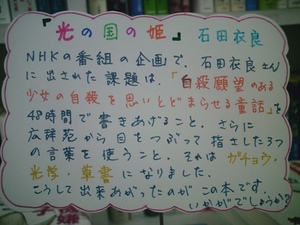 『光の国の姫』 石田衣良
NHKの番組の企画で、石田衣良さん
に出された課題は、「自殺願望のある
少女の自殺を思いとどまらせる童話」を
48時間で書きあげること。さらに
広辞苑から目をつぶって指さした3つ
の言葉を使うこと。それは ガチョウ・
光学・草書 になりました。
こうして出来あがったのが この本です。
いかがでしょうか?